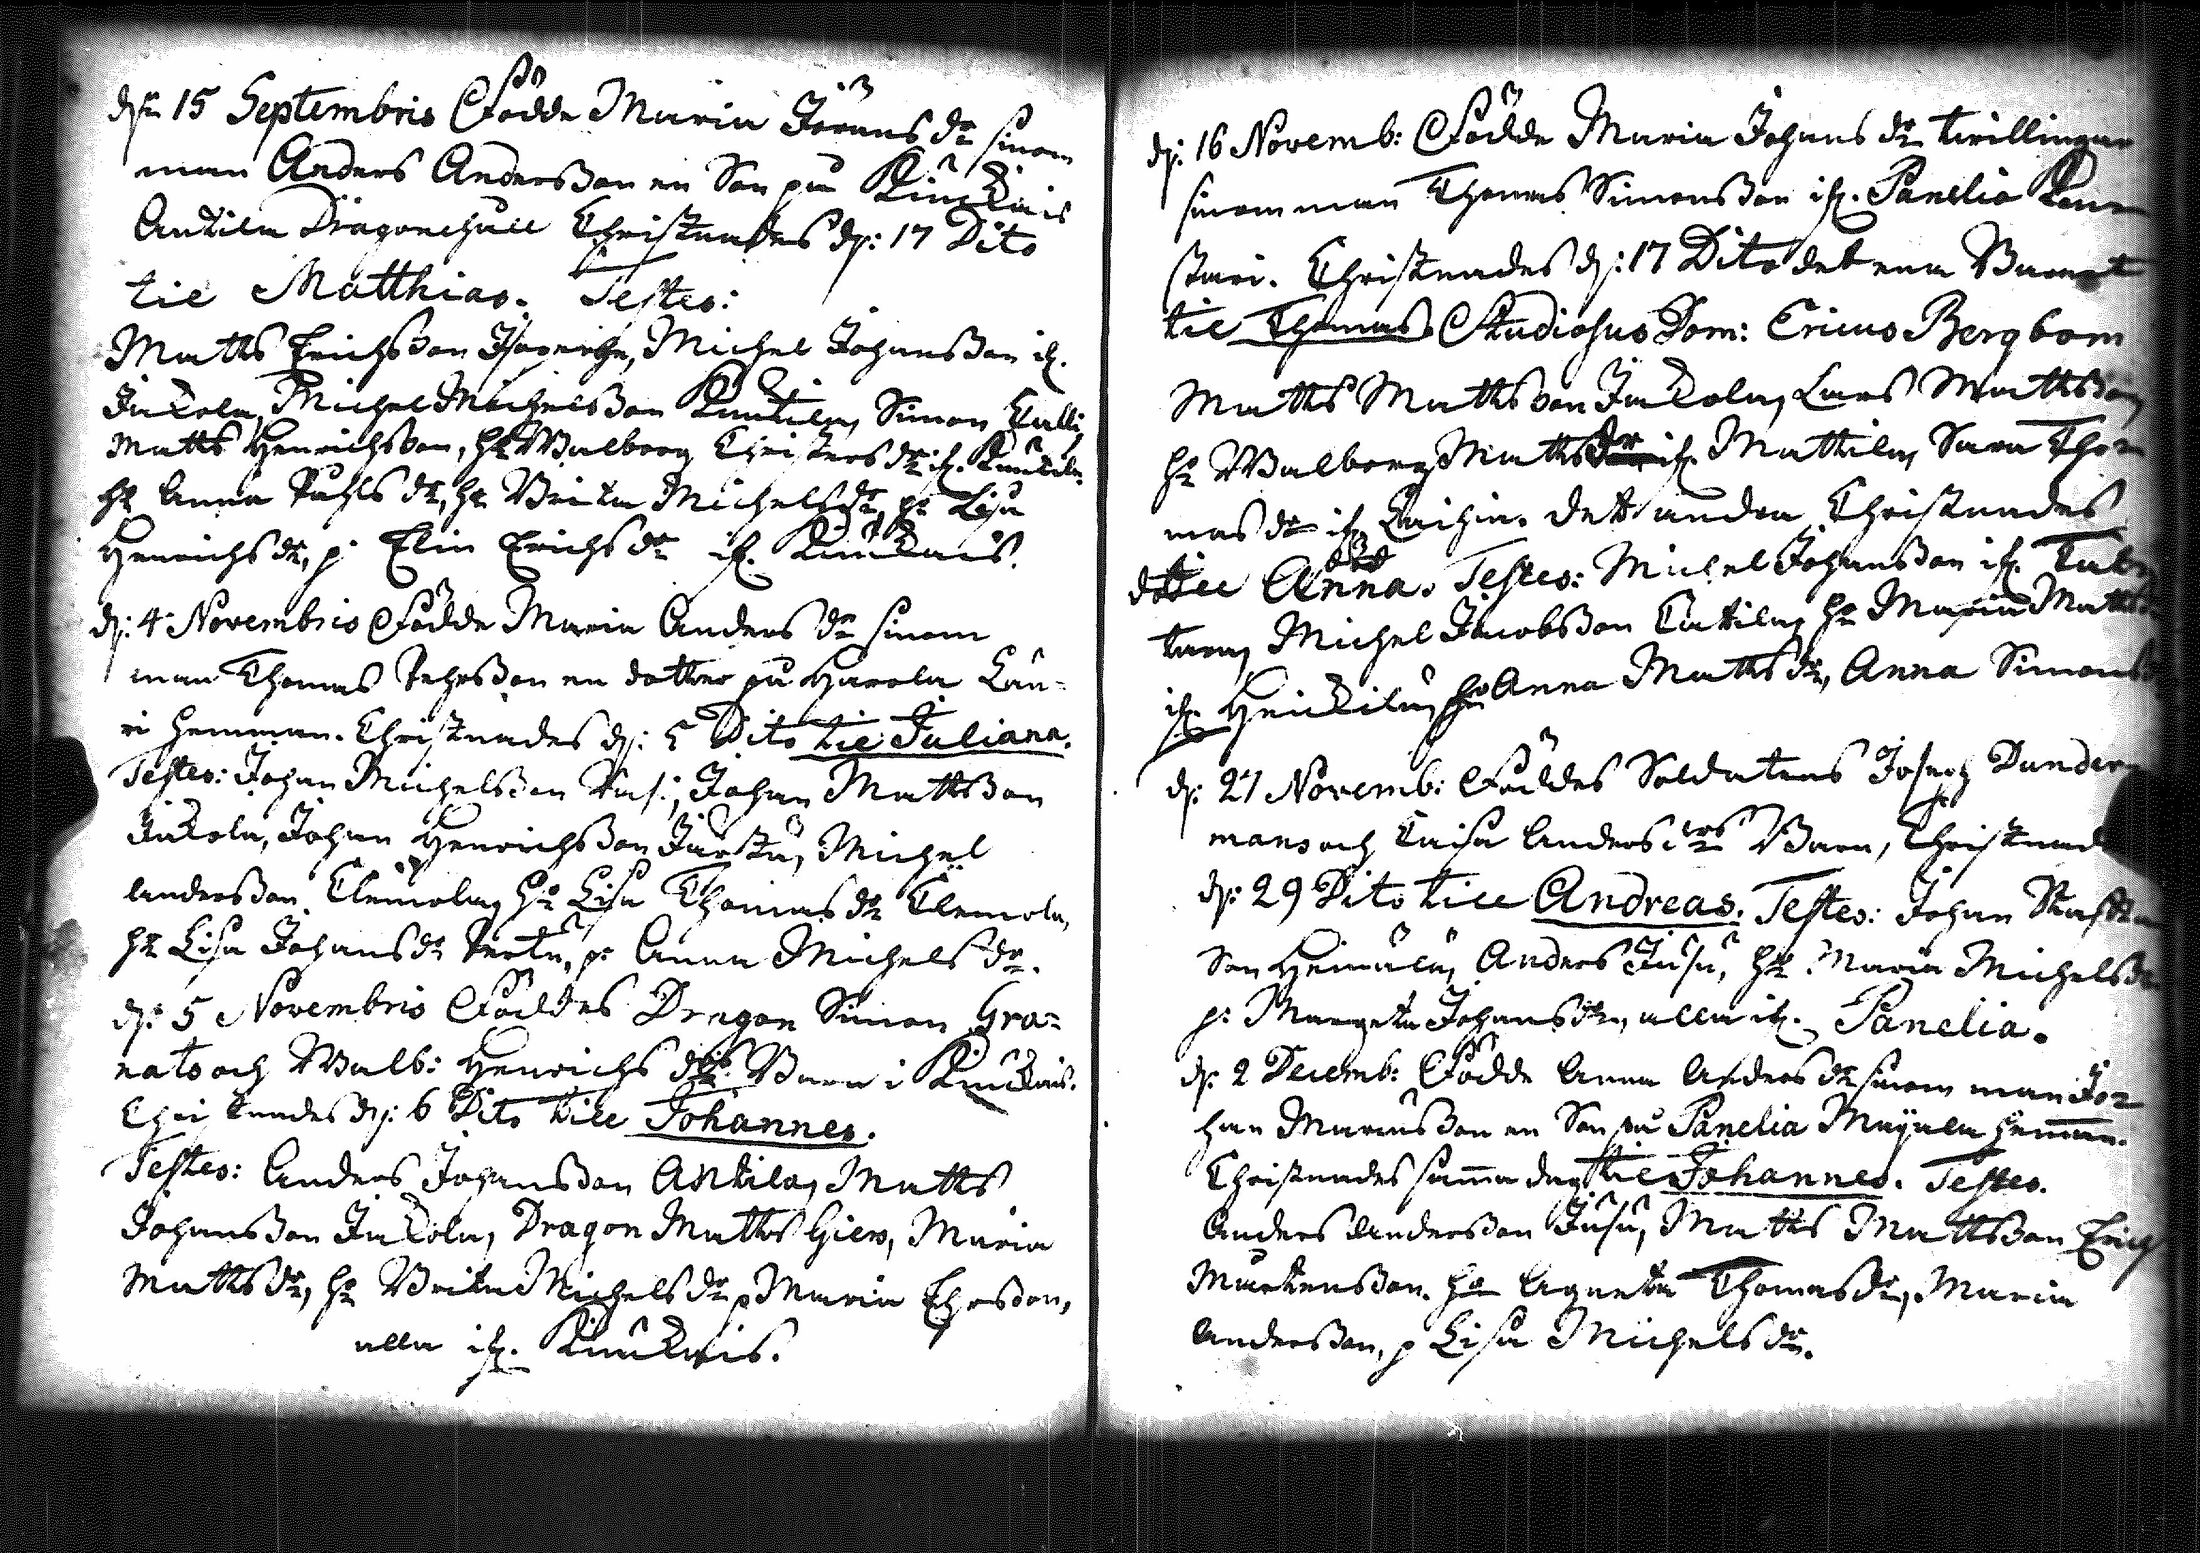 dn 15 Septembris Födde Maria Jörans dr sinom
man Anders Andersson en Son på Kiuckais
Anttila Dragonehåll Christnades d: 17 Dito
till Matthias. Testes:
Matts Erichsson Michel Johansson if.
Juckola, Michel Michelsson Simon
Matts Henrichsson, h: Walborg Christers dr if.
h: Anna Påhls dr, h: Brita Michelsdr, p: Lisa
Henrichs dr, p: Elin Erichs dr if. Kiuckais.
d: 4 Novembris Födde Maria Anders dr sinom
man Thomas en dotter på Harola Lau-
ri hemman. Christnades d: 5 Dito till Juliana.
Testes: Johan Michelsson Johan Mattsson
Juckola, Johan Henrichsson Michel
Andersson Clemola, h: Lisa Thomas dr Clemola,
h: Lisa Johansdr p: Anna Michels dr.
d: 5 Novembris Föddes Dragon Simon Gra-
nats och Walb: Henrichs drs Barn i Kiuckais.
Christnades d: 6 Dito till Johannes.
Testes: Anders Johansson Antila, Matts
Johansson Juckola, Dragon Matts Giers, Maria
Matts dr, h: Brita Michels dr p Maria
alla if. Kiuckais.
d: 16 Novemb: Födde Maria Johans dr twillingar
sinom man Thomas Simonsson if. Panelia
Christnades d: 17 Dito det ena Barnet
till Thomas Studiosus Dom: Ericus Bergbom
Matts Mattsson Juckola, Lars Mattsson
h: Walborg Matts dr if. Mattila, Sara Tho
mas dr if. dett andra Christnades
dött Anna. Testes: Michel Johansson if.
Michel Jacobsson h: Maria Matts
if. Heickilä, h: Anna Mattsdr, Anna Simons
d: 27 Novemb: Föddes Soldatens Joseph Dunder
mans och Caisa Anders drs Barn, Christnad
d: 29 Dito till Andreas. Testes: Johan
son Anders h: Maria Michelsdr
p: Margeta Johansdr, alla if. Panelia.
d: 2 Decemb: Födde Anna Anders dr sinom man Jo-
han en Son på Panelia hemman.
Christnades samma dag till Johannes. Testes.
Anders Andersson Matts Mattsson Erich
Mårtensson. h: Agneta Thomasdr, Maria
Andersson, p Lisa Michels dr.